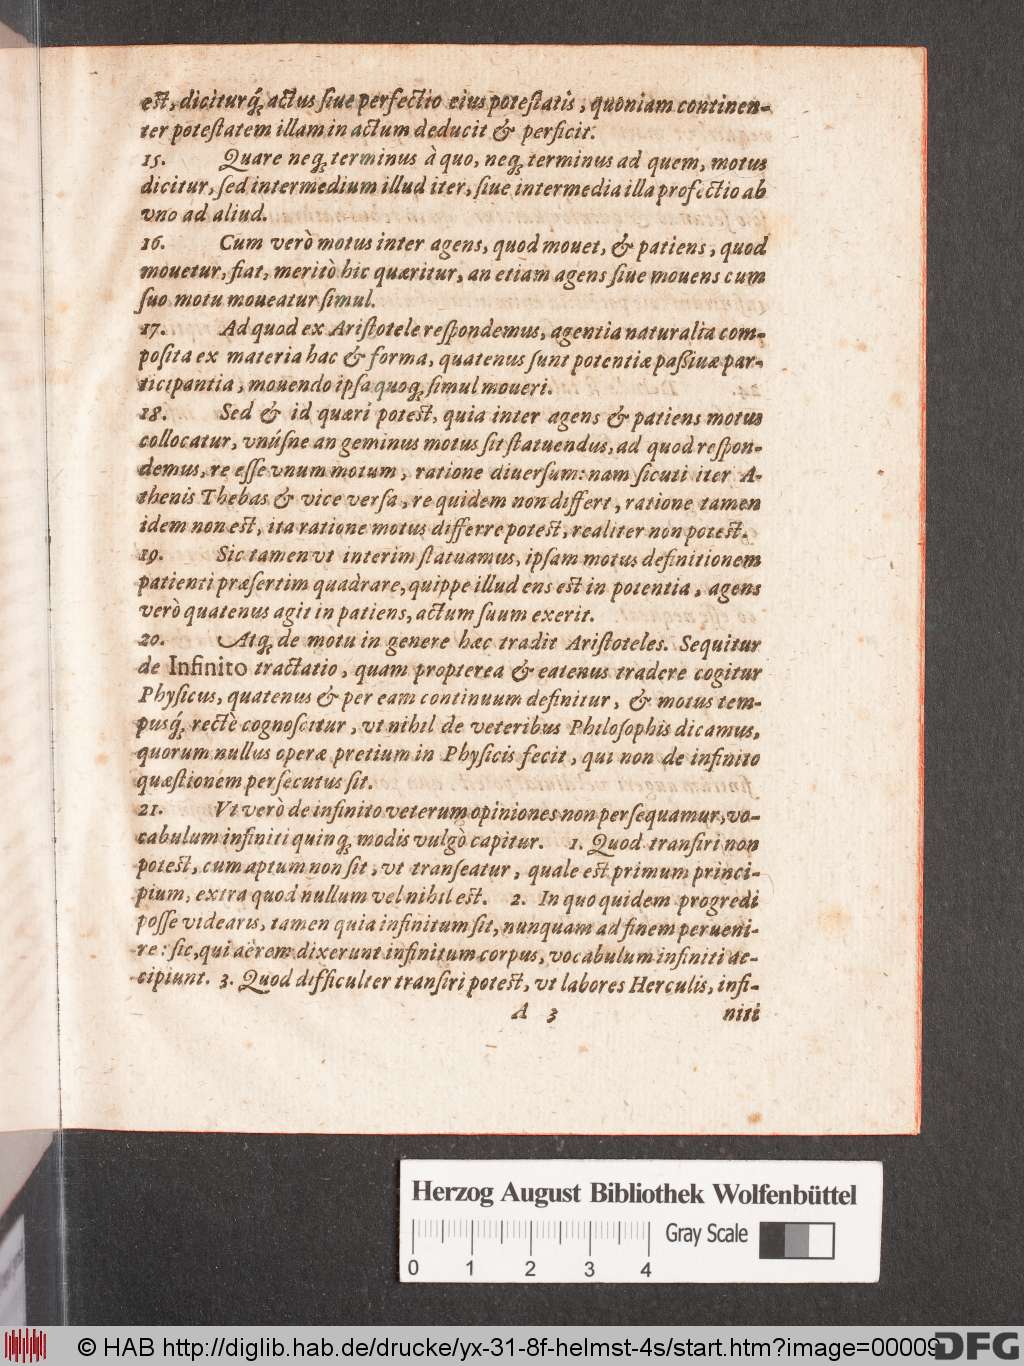 est, diciturq́; actus ſiue perfectio eius poteſtatis, quoniam continen-
ter poteſtatem illam in actum deducit & perficit.
15. Quare neq; terminus à quo, neq; terminus ad quem, motus
dicitur, ſed intermedium illud iter, ſiue intermedia illa profectio ab
vno ad aliud.
16. Cum verò motus inter agens, quod mouet, & patiens, quod
mouetur, fiat, meritò hic quæritur, an etiam agens ſiue mouens cum
ſuo motu moueatur ſimul.
17. Ad quod ex Ariſtotele reſpondemus, agentia naturalia com-
poſita ex materia hac & forma, quatenus ſunt potentiæ paßiuæ par-
ticipantia, mouendo ipſa quoq; ſimul moueri.
18. Sed & id quæri poteſt, quia inter agens & patiens motus
collocatur, vnúſne an geminus motus ſit ſtatuendus, ad quod reſpon-
demus, re eſſe vnum motum, ratione diuerſum: nam ſicuti iter A-
thenis Thebas & vice verſa, re quidem non differt, ratione tamen
idem non eſt, ita ratione motus differre poteſt, realiter non poteſt.
19. Sic tamen vt interim ſtatuamus, ipſam motus definitionem
patienti præſertim quadrare, quippe illud ens eſt in potentia, agens
verò quatenus agit in patiens, actum ſuum exerit.
20. Atq; de motu in genere hæc tradit Ariſtoteles. Sequitur
de Infinito tractatio, quam propterea & eatenus tradere cogitur
Phyſicus, quatenus & per eam continuum definitur, & motus tem-
pusq́; rectè cognoſcitur, vt nihil de veteribus Philoſophis dicamus,
quorum nullus operæ pretium in Phyſicis fecit, qui non de infinito
quæſtionem perſecutus ſit.
21. Vt verò de infinito veterum opiniones non perſequamur, vo-
cabulum infiniti quinq; modis vulgò capitur. 1. Quod tranſiri non
poteſt, cum aptum non ſit, vt tranſeatur, quale eſt primum princi-
pium, extra quod nullum vel nihil eſt. 2. In quo quidem progredi
poſſe videaris, tamen quia infinitum ſit, nunquam ad finem perueni-
re: ſic, qui aërem dixerunt infinitum corpus, vocabulum infiniti ac-
cipiunt. 3. Quod difficulter tranſiri poteſt, vt labores Herculis, infi-
A 3 niti
Herzog August Bibliothek Wolfenbüttel
Gray Scale
0 1 2 3 4
© HAB http://diglib.hab.de/drucke/yx-31-8f-helmst-4s/start.htm?image=00009
DFG